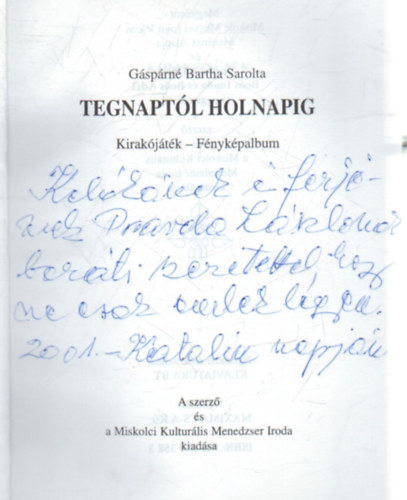 Gáspárné Bartha Sarolta
TEGNAPTÓL HOLNAPIG
Kirakójáték – Fényképalbum
Katókának és férjé-
nek Pravda Lászlónak
baráti szeretettel, hogy
ne csak emlék legyen.
2001. – Katalin napján
A szerző
és
a Miskolci Kulturális Menedzser Iroda
kiadása